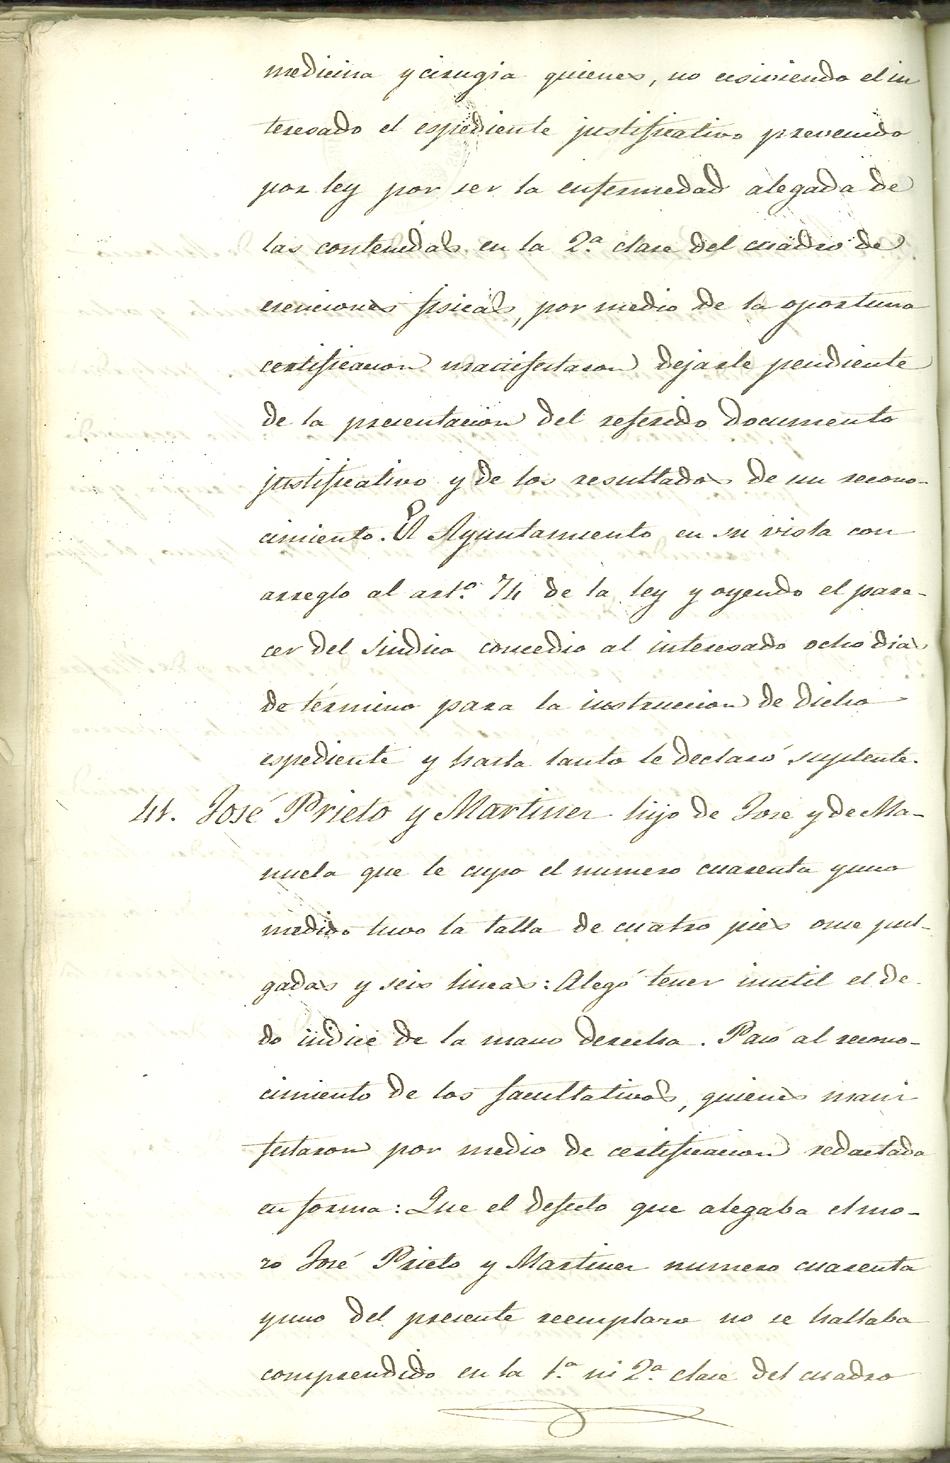 medicina y cirugia quienes, no exiviendo el in
teresado el espediente justificativo prevenido
por ley por ser la enfermedad alegada de
las contenidas en la 2.ª clase del cuadro de
esenciones fisicas, por medio de la oportuna
certificacion manifestaron dejarle pendiente
de la presentacion del referido documento
justificativo y de los resultados de un recono-
cimiento. El Ayuntamiento en su vista con
arreglo al art.º 74 de la ley y oyendo el pare-
cer del Sindico concedio al interesado ocho dias
de término para la instruccion de dicho
espediente y hasta tanto le declaró suplente.
41. José Prieto y Martinez hijo de José y de Ma-
nuela que le cupo el numero cuarenta y uno
medido tuvo la talla de cuatro pies once pul-
gadas y seis lineas: Alegó tener inutil el de-
do indice de la mano derecha. Pasó al recono-
cimiento de los facultativos, quienes mani
festaron por medio de certificacion redactada
en forma: Que el defecto que alegaba el mo-
zo José Prieto y Martinez numero cuarenta
y uno del presente reemplazo no se hallaba
comprendido en la 1.ª ni 2.ª clase del cuadro